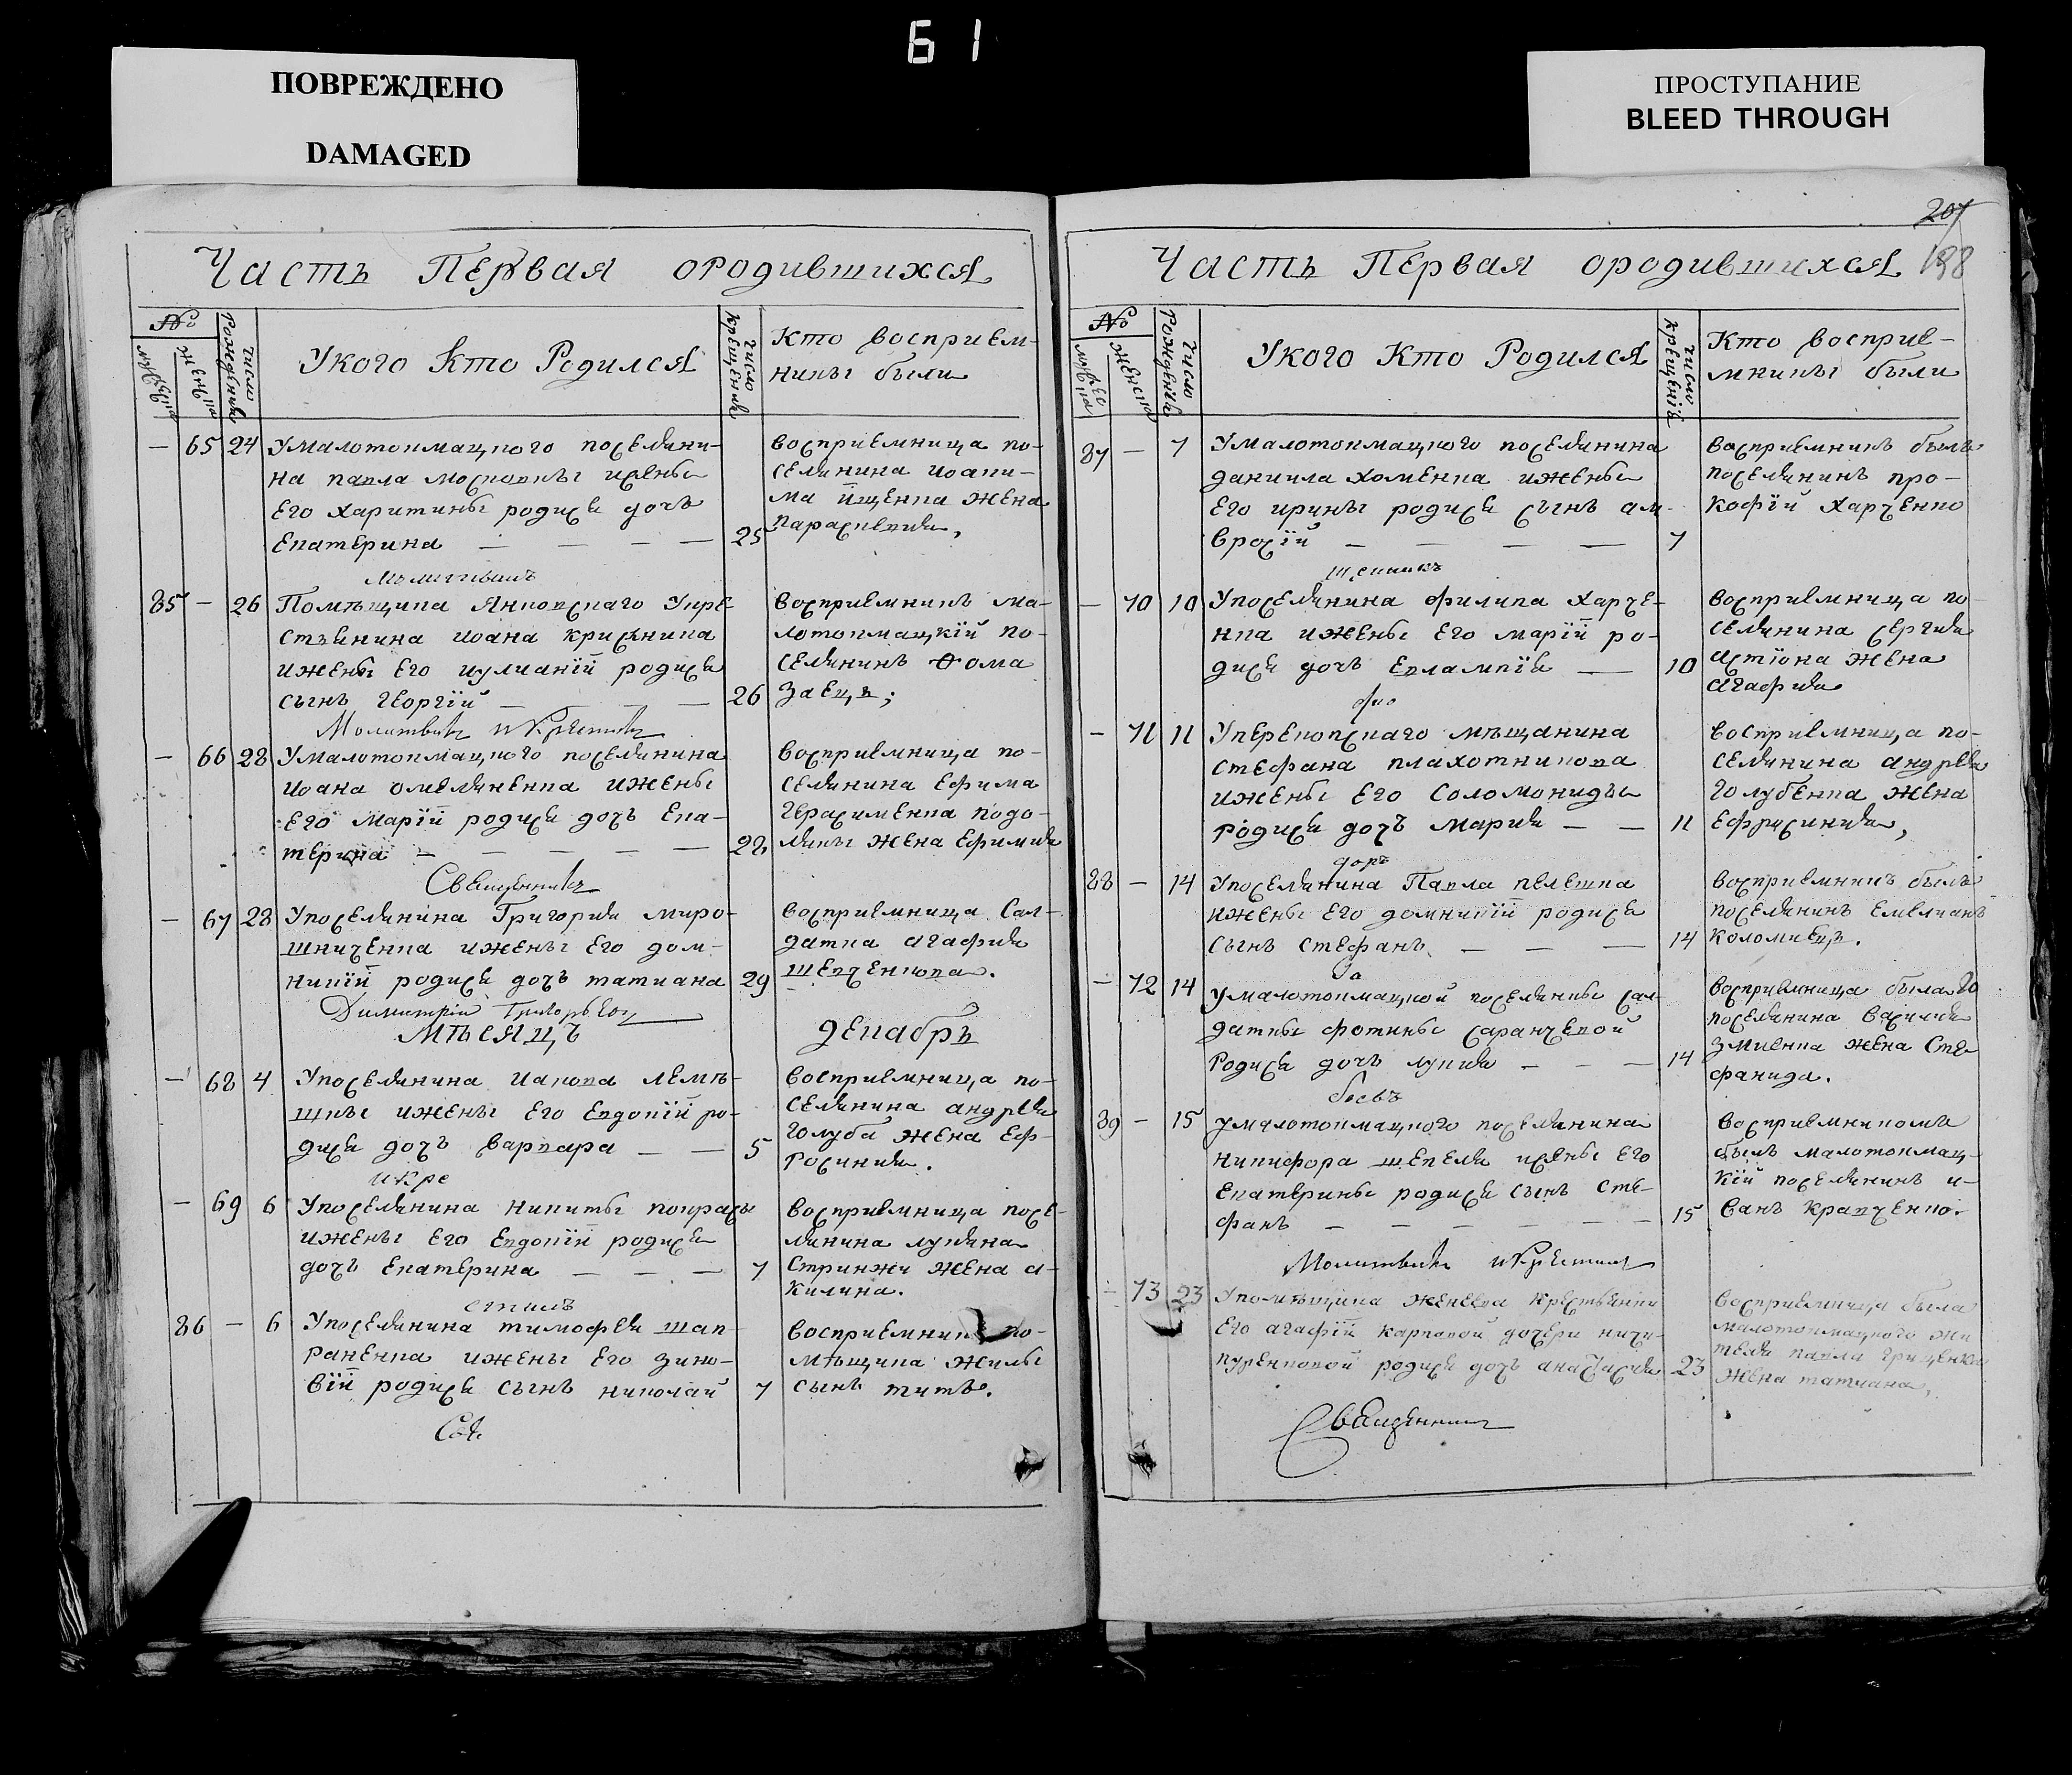 Б 1
ПОВРЕЖДЕНО
DAMAGED
ПРОСТУПАНИЕ
BLEED THROUGH
Часть Первая ородившихся
№
число Рождения
Укого кто Родился
число крещения
Кто восприем-
ники были
— 65 24 Умалотокмацкого поселяни-
на павла московки ижены
его харитины родися дочь
екатерина — — — — 25
восприемница по-
селянина иоаки-
ма йщенка жена
параскевия,
молитвилъ
85 — 26 Помѣщика Янковскаго Укре-
стьянина иоана крисѣника
ижены его иулианій родися
сынъ георгій — — — 26
восприемникъ ма-
лотокмацкій по-
селянинъ Ѳома
Заецъ;
Молитвилъ икрестилъ
— 66 28 Умалотокмацкого поселянина
иоана омеляненка ижены
его марій родися дочъ ека-
терина — — — — — 28
восприемница по-
селянина ефима
герасименка подо-
ляки жена ефимия
Священникъ
— 67 28 Упоселянина Григория миро-
шниченка ижены его дом-
никій родися дочъ татиана 29
восприемница Сол-
датка агафия
шевченкова.
Димитрій Григорьевъ
Мѣсяцъ декабрь
— 68 4 Упоселянина иакова лемѣ-
шки ижены его евдокій ро-
дися дочъ варвара — — 5
восприемница по-
селянина андрея
голуба жена еф-
росиния.
икре
— 69 6 Упоселянина никиты покрасы
ижены его евдокій родися
дочъ екатерина — — — 7
восприемница посе-
лянина лукяна
Стринжи жена а-
килина.
стилъ
86 — 6 Упоселянина тимофея шап-
раненка ижены его зино-
вій родися сынъ николай 7
восприемникъ по-
мѣщика жилы
сынъ титъ.
Свя
207
198
Часть Первая ородившихся
№
женска
число Рождения
Укого Кто Родился
число крещенія
Кто восприе-
мники были
87 — 7 Умалотокмацкого поселянина
даниила хоменка ижены
его ирины родися сынъ ам-
вросій — — — — 7
восприемникъ былъ
поселянинъ про-
кофій харченко
щенникъ
— 70 10 Упоселянина филипа харче-
нка ижены его марій ро-
дися дочъ евлампія — 10
восприемница по-
селянина сергия
жена
агафия
— 71 11 Уперекопскаго мѣщанина
стефана плахотникова
ижены его соломониды
родися дочъ мария — — 11
восприемница по-
селянина андрея
голубенка жена
ефросиния,
88 — 14 Упоселянина Павла пелешка
ижены его домникій родися
сынъ стефанъ. — — — 14
восприемникъ былъ
поселянинъ емелианъ
коломиецъ.
— 72 14 Умалотокмацкой поселянки сол-
датки фотины саранчевой
Родися дочъ лукия — — — 14
восприемница была
поселянина василия
змиенка жена Сте-
фанида.
89 — 15 умалотокмацкого поселянина
никифора шепеля ижены его
екатерины родися сынъ сте-
фанъ — — — — — — 15
восприемникомъ
былъ малотокмац-
кій поселянинъ и-
ванъ кравченко.
Молитвилъ икрестилъ
— 73 23 Упомѣщика женевра крестьянки
его агафій карповой дочери
родися дочъ анастасия 23
восприемница была
малотокмацкого жи
теля павла гриценка
жена татиана,
Священникъ